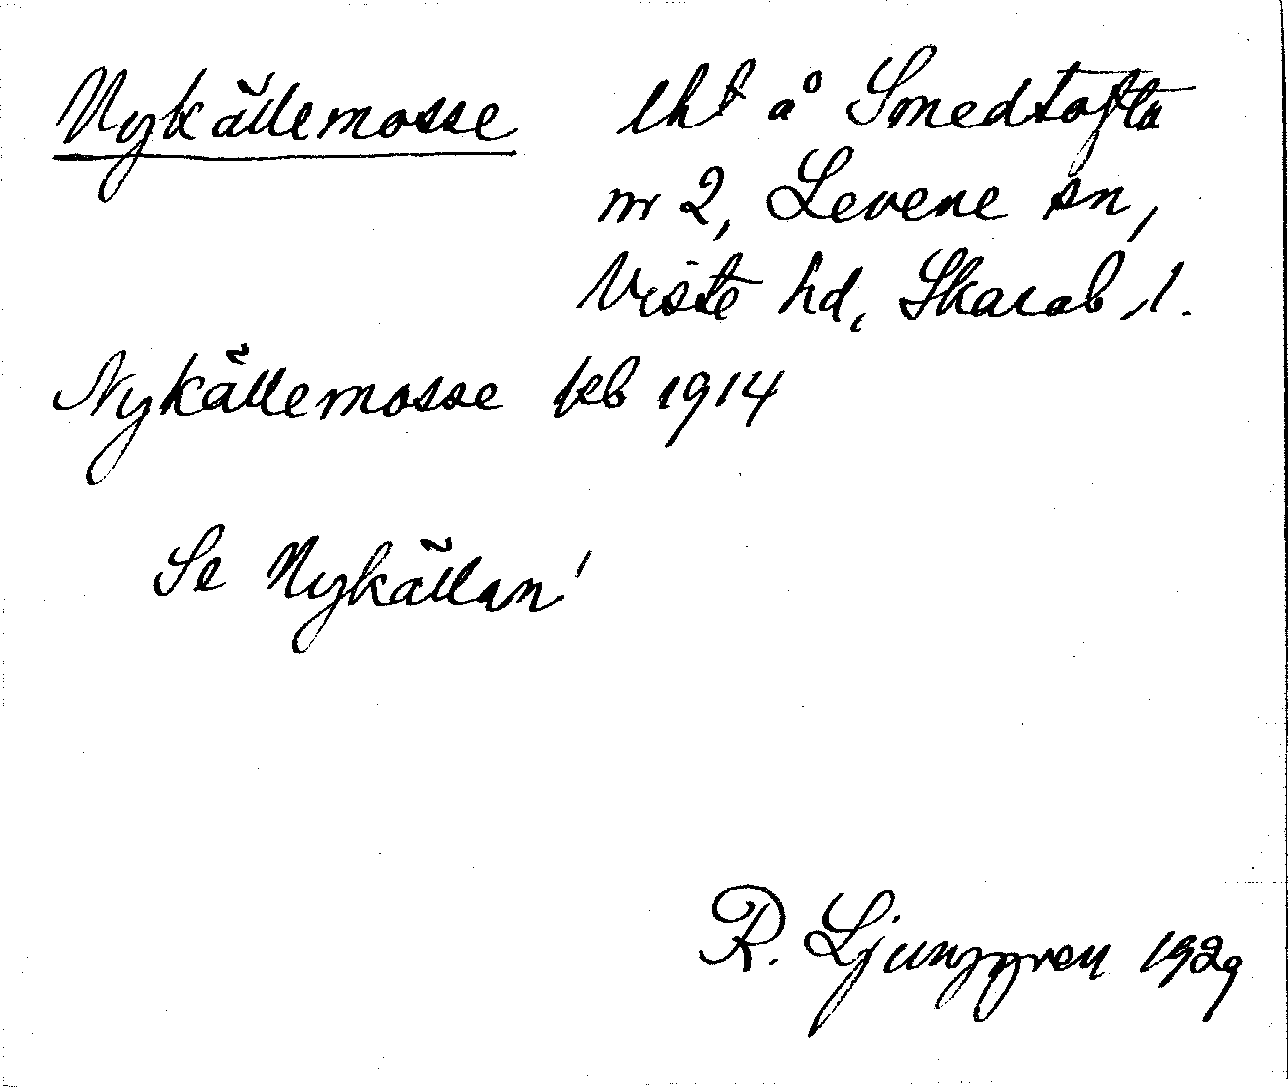 Nykällemosse lht å Smedtofta
nr 2, Levene sn,
Viste hd, Skarab. l.
Nykällemosse kb 1914
Se Nykällan!
R. Ljunggren 1929